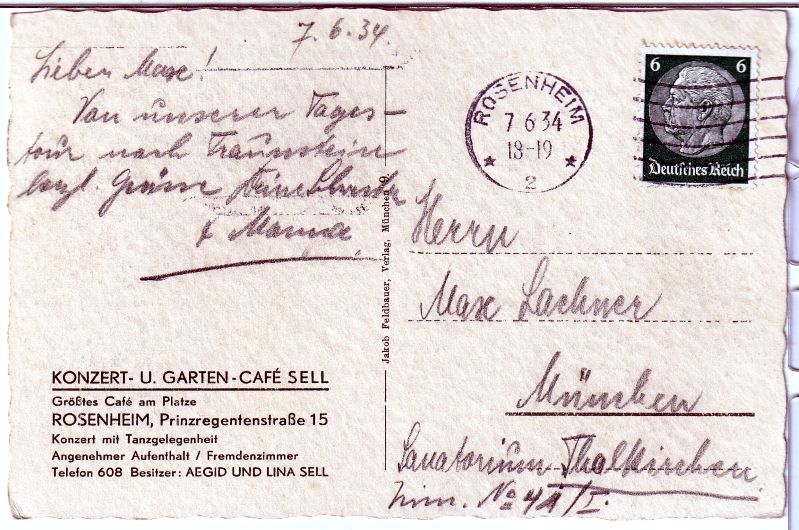 7.6.34.
Lieben Max!
Von unserer Tages-
tour nach Traunstein
herzl. Grüsse
& Mama
KONZERT- U. GARTEN-CAFÉ SELL
Größtes Café am Platze
ROSENHEIM, Prinzregentenstraße 15
Konzert mit Tanzgelegenheit
Angenehmer Aufenthalt / Fremdenzimmer
Telefon 608 Besitzer: AEGID UND LINA SELL
Jakob Feldbauer, Verlag, München 9.
ROSENHEIM
7 6 34
18-19
* *
2
6 6
Deutsches Reich
Herrn
Max Lachner
München
Sanatorium Thalkirchen
Zimm. No 4